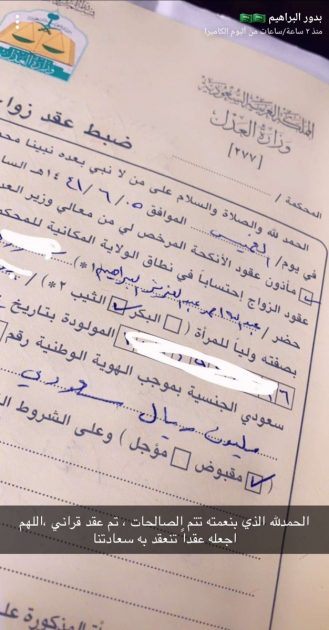 بدور البراهيم
منذ ٢ ساعة/ساعات من ألبوم الكاميرا
المملكة العربية السعودية
وزارة العدل
[٢٧٧]
وزارة العدل
ضبط عقد زوا
المحكمة /
الحمد لله والصلاة والسلام على من لا نبي بعده نبينا محمد
في يوم / الخميس الموافق ٠٥ / ٦ / ١٤٤١هـ السا
مأذون عقود الأنكحة المرخص لي من معالي وزير العد
عقود الزواج احتساباً في نطاق الولاية المكانية للمحكمة
حضر /
بصفته ولياً للمرأة ( البكر الثيب ٢*) /
المولودة بتاريخ
سعودي الجنسية بموجب الهوية الوطنية رقم
مليون ريال سعودي
( مقبوض مؤجل ) وعلى الشروط التا
الحمدلله الذي بنعمته تتم الصالحات ، تم عقد قراني ،اللهم
اجعله عقداً تنعقد به سعادتنا
المذكورة على